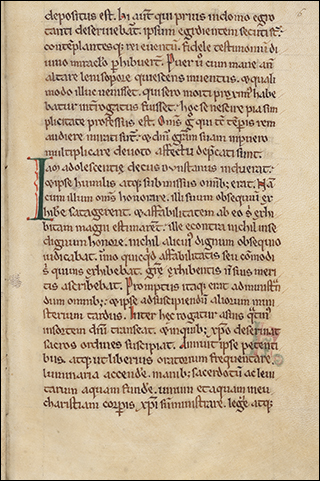 depositus est. Hi aut̄ qui prius in domo egro
tanti deseruiebat. ipsum egredientem secuti s̄t.
cōtēplantesq; rei euentū. fidele testimoniū di
uino miraclo perhibuert. Puer ū cum mane an̄
altare leni sopore quiescens inuentus. & quali
modo illuc uenisset. qui sero morti proximus habe
batur interrogatus fuisset. hoc se nescire pia sim
plicitate professus est. Om̄s g̃ qui t̄c teporis rem
audiere mirati sunt. & dn̄i gr̃am suam in puero
multiplicare deuoto affectu dep̄cati sunt.
Iam adolescentie decus Dunstanus induerat.
& ipse humilis atq; submissus omib; erat. Nā
cum illum om̄s honorare. illi suum obsequiū ex
hibe satagerent. & affabilitatem ab eo s̄ exhi
bitam magni estimarent. ille econtra nichil in se
dignum honore. nichil alicui dignum obsequio
iudicabat. uno quicqd affabilitatis seu cōmodi
s̄ quiuis exhibebat. gr̃e exhibentis n̄ suis meri
tis ascribebat. Promptus itaq; erat administrā
dum omnib; & ipse ad suscipiendū aliorum mini
sterium tardus. Inter hec rogatur a suis q̄tin̄
in sortem dn̄i transeat. & in quib; xp̄o deseruiat
sacros ordines suscipiat. Annuit ipse petenti
bus. atq; ut liberius oratorium frequentare.
luminaria accende. manib; sacerdotū ac leui
tarum aquam funde. uinum et aquam in eu
charistiam corporis xp̄i sūministrare. lege. atq;